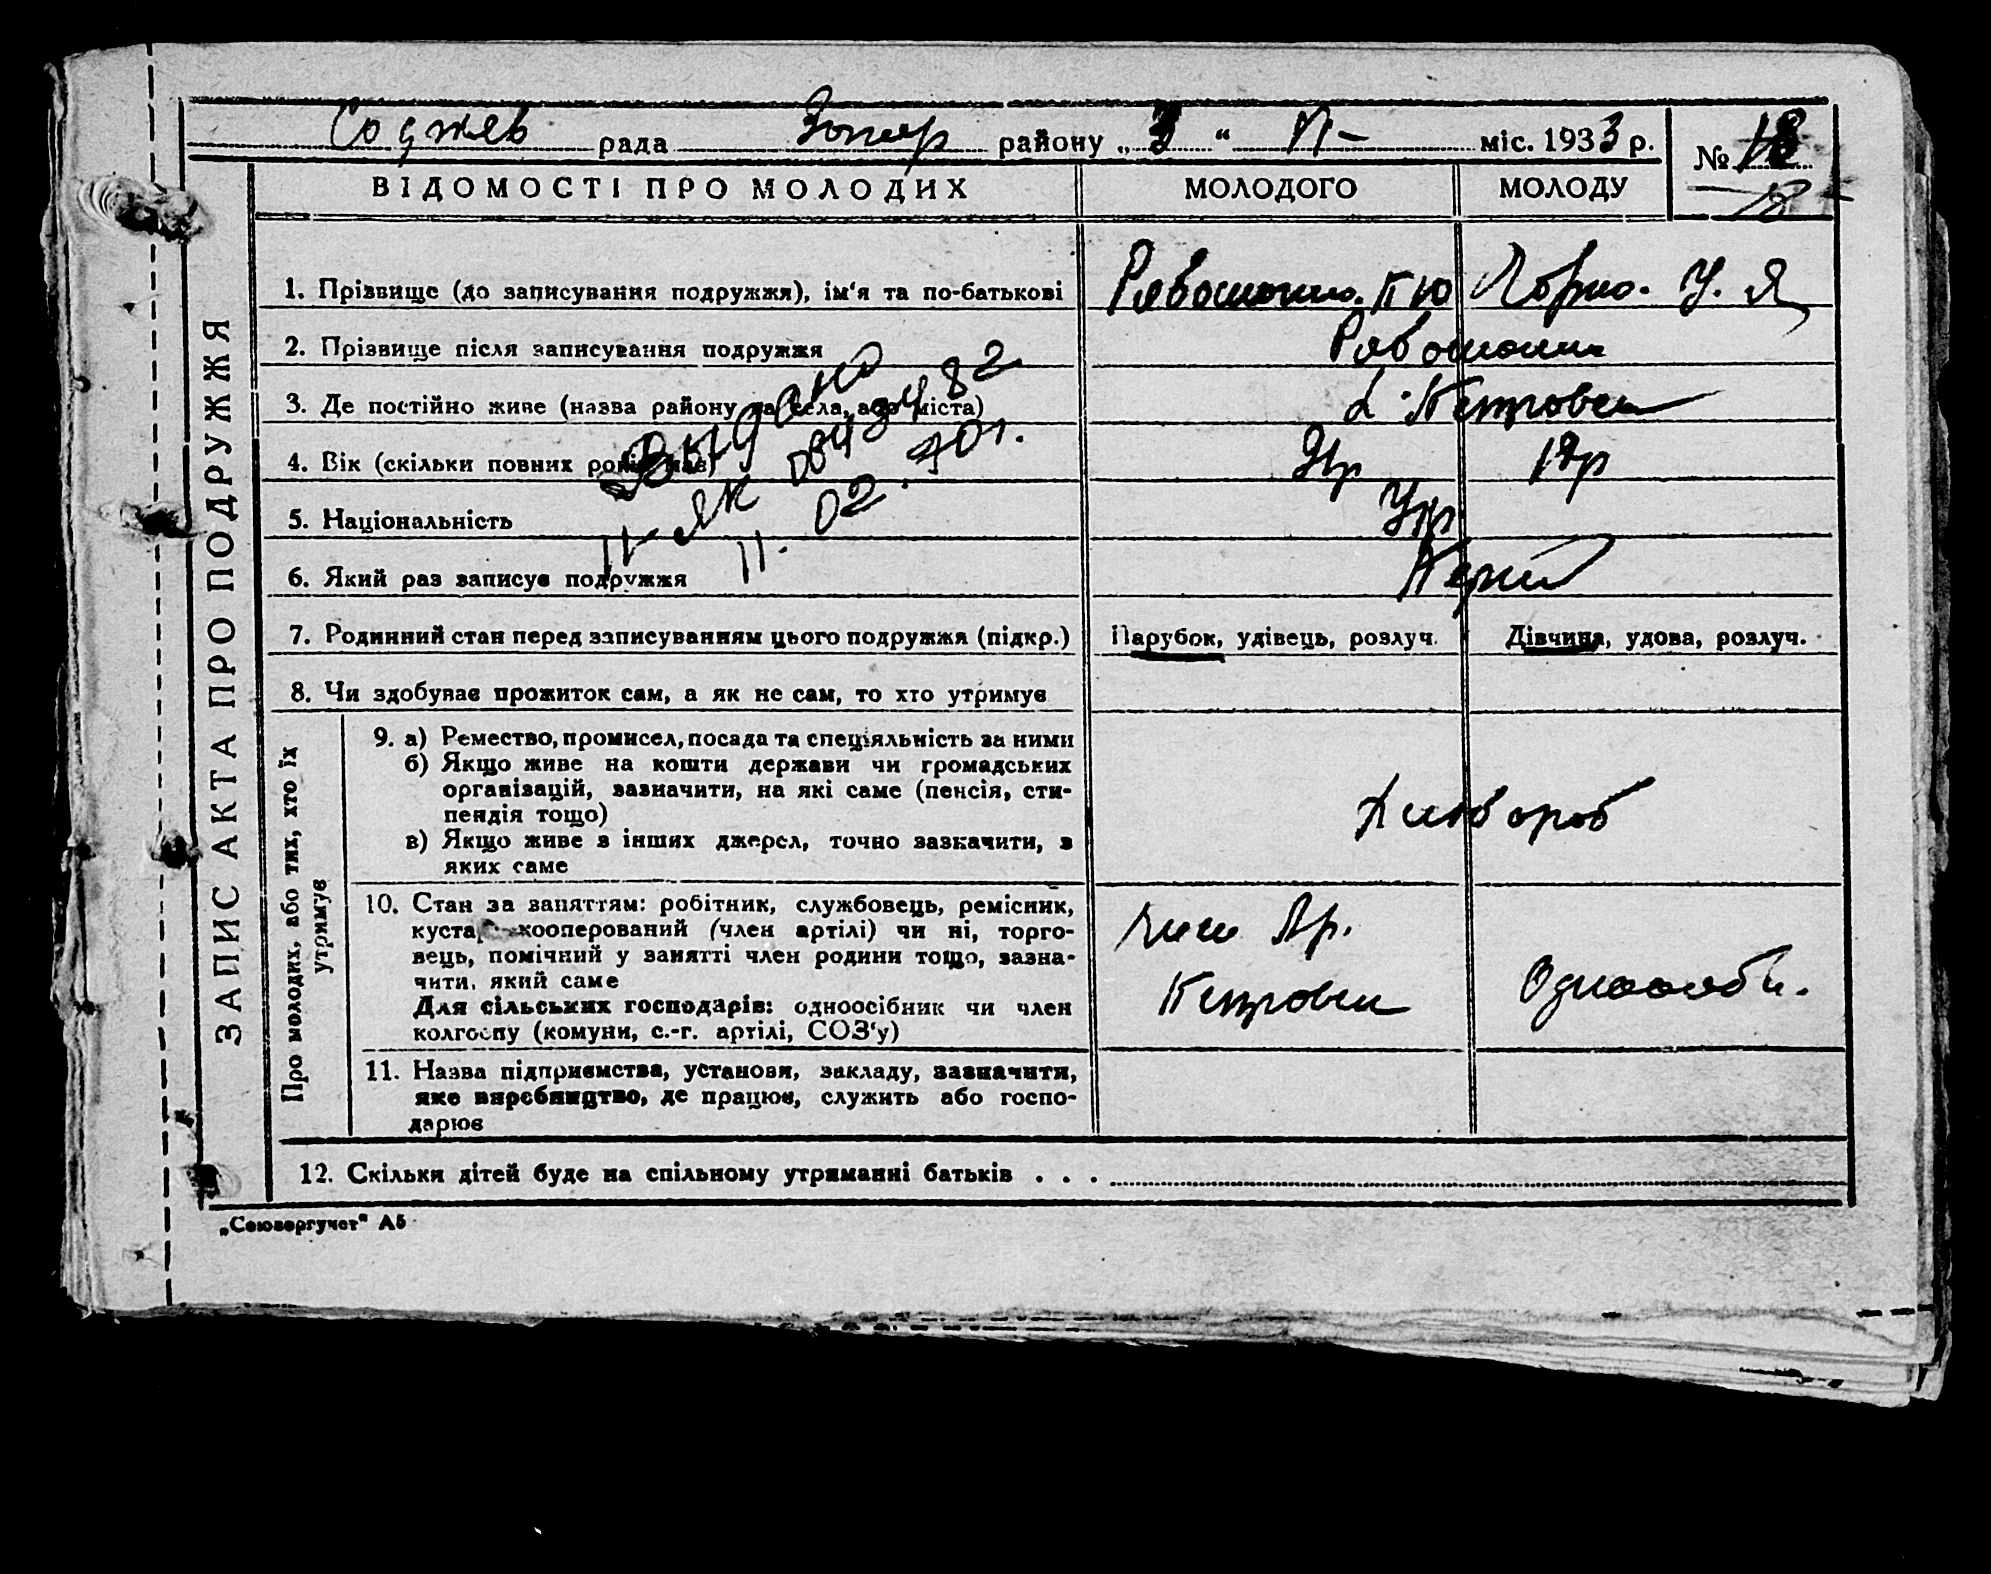 рада району „3“ міс. 1933 р. № 18
ВІДОМОСТІ ПРО МОЛОДИХ МОЛОДОГО МОЛОДУ
ЗАПИС АКТА ПРО ПОДРУЖЖЯ
1. Прізвище (до записування подружжя), ім‘я та по-батькові П Ю У. Я
2. Прізвище після записування подружжя
3. Де постійно живе (назва району та села, або міста)
4. Вік (скільки повних років має)
5. Національність Укр
6. Який раз записує подружжя
Выдано
II-ЯК 084382
11. 02. 70г.
7. Родинний стан перед записуванням цього подружжя (підкр.) Парубок, удівець, розлуч. Дівчина, удова, розлуч.
8. Чи здобуває прожиток сам, а як не сам, то хто утримує
Про молодих, або тих, хто їх утримує
9. а) Ремество, промисел, посада та спеціяльність за ними
б) Якщо живе на кошти держави чи громадських
організацій, зазначити, на які саме (пенсія, сти-
пендія тощо)
в) Якщо живе з інших джерел, точно зазначити, з
яких саме
Хлібороб
10. Стан за заняттям: робітник, службовець, ремісник,
кустар кооперований (член артілі) чи ні, торго-
вець, помічний у занятті член родини тощо, зазна-
чити, який саме
Для сільських господарів: одноосібник чи член
колгоспу (комуни, с.-г. артілі, СОЗ‘у)
член Ар.
11. Назва підприємства, установи, закладу, зазначити,
яке виробництво, де працює, служить або госпо-
дарює
12. Скільки дітей буде на спільному утриманні батьків . . .
„Союзоргучет“ А5